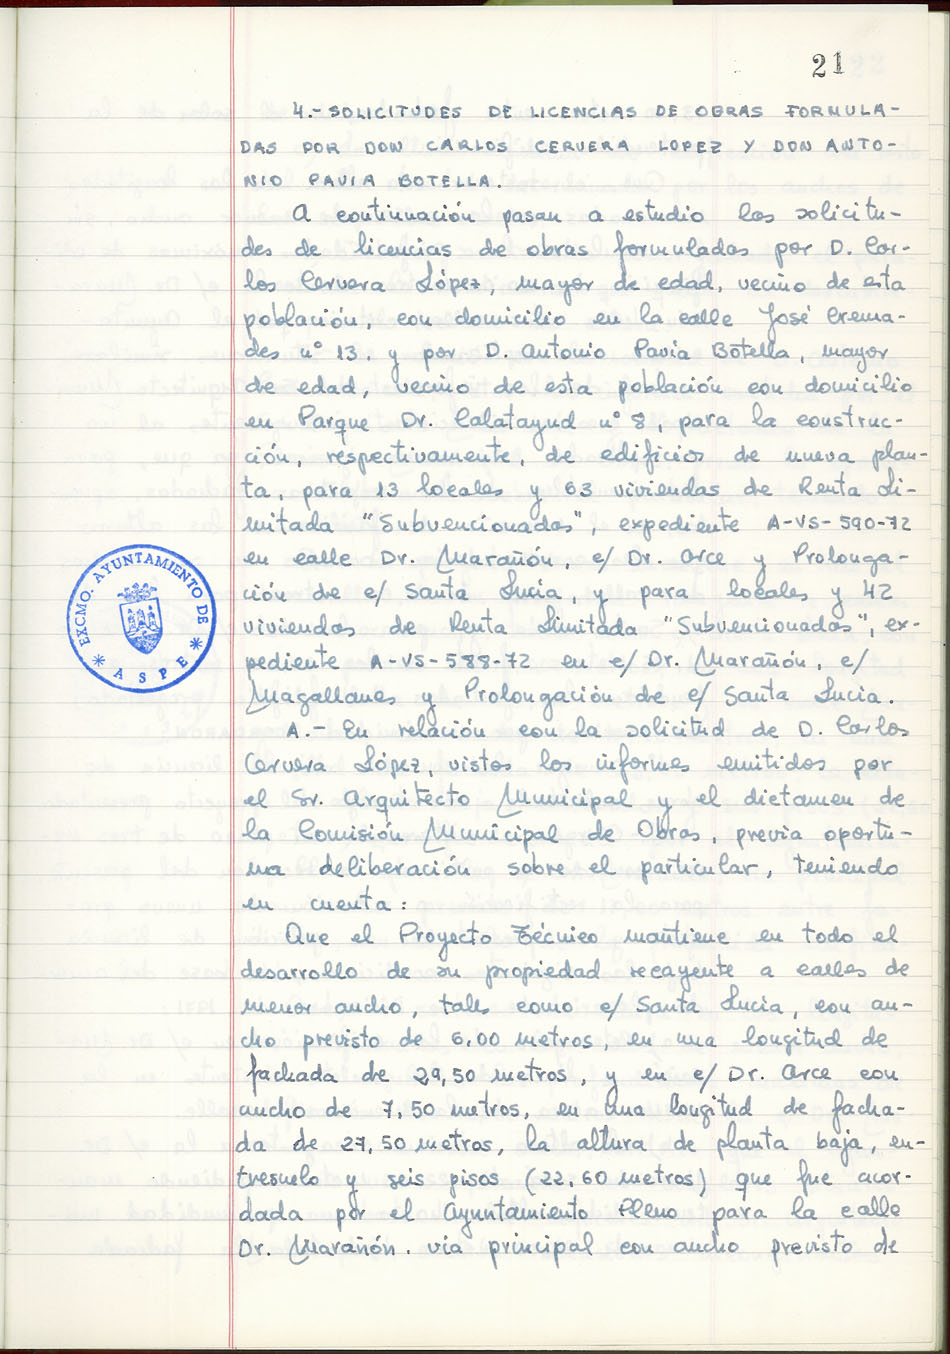 21
4.- SOLICITUDES DE LICENCIAS DE OBRAS FORMULA-
DAS POR DON CARLOS CERVERA LOPEZ Y DON ANTO-
NIO PAVIA BOTELLA.
A continuación pasan a estudio las solicitu-
des de licencias de obras formuladas por D. Car-
los Cervera López, mayor de edad, vecino de esta
población, con domicilio en la calle José Crema-
des nº 13 y por D. Antonio Pavia Botella, mayor
de edad, vecino de esta población con domicilio
en Parque Dr. Calatayud nº 8, para la construc-
ción, respectivamente, de edificios de nueva plan-
ta, para 13 locales y 63 viviendas de Renta Li-
mitada "Subvencionadas", expediente A-VS-590-72
en calle Dr. Marañón, c/ Dr. Arce y Prolonga-
ción de c/ Santa Lucia, y para locales y 42
viviendas de Renta Limitada "Subvencionadas", ex-
pediente A-VS-588-72 en c/ Dr. Marañón, c/
Magallanes y Prolongación de c/ Santa Lucia.
A.- En relación con la solicitud de D. Carlos
Cervera López, vistos los informes emitidos por
el Sr. Arquitecto Municipal y el dictamen de
la Comisión Municipal de Obras, previa oportu-
na deliberación sobre el particular, teniendo
en cuenta:
Que el Proyecto Técnico mantiene en todo el
desarrollo de su propiedad recayente a calles de
menor ancho, tales como c/ Santa Lucia, con an-
cho previsto de 6,00 metros, en una longitud de
fachada de 29,50 metros, y en c/ Dr. Arce con
ancho de 7,50 metros, en una longitud de facha-
da de 27,50 metros, la altura de planta baja, en-
tresuelo y seis pisos (22,60 metros) que fue acor-
dada por el Ayuntamiento Pleno para la calle
Dr. Marañón. vía principal con ancho previsto de
EXCMO. AYUNTAMIENTO DE
* ASPE *